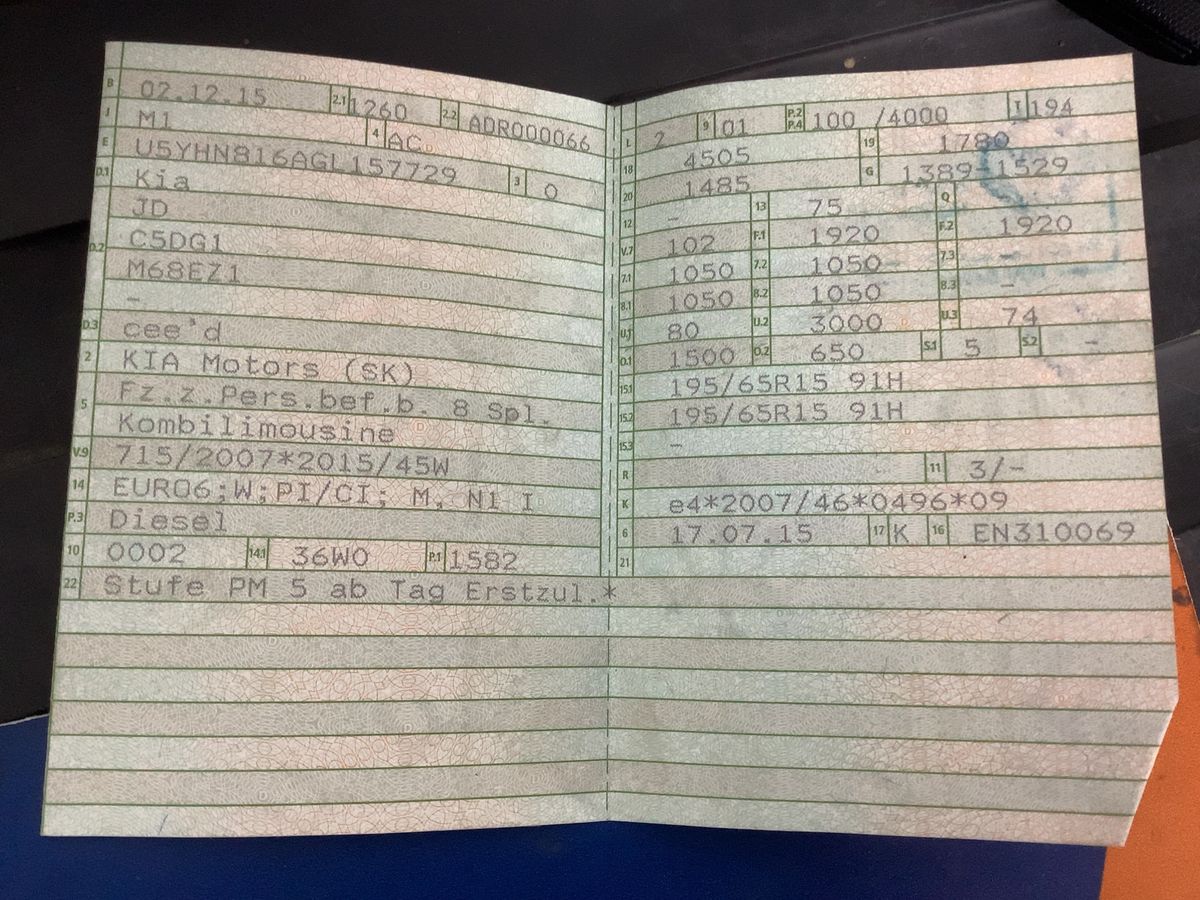 B 02.12.15 2.1 1260 2.2 ADR000066
J M1 4 AC
E U5YHN816AGL157729 3 0
D.1 Kia
JD
D.2 C5DG1
M68EZ1
-
D.3 cee'd
2 KIA Motors (SK)
5 Fz.z.Pers.bef.b. 8 Spl.
Kombilimousine
V.9 715/2007*2015/45W
14 EURO6;W;PI/CI; M, N1 I
P.3 Diesel
10 0002 14.1 36W0 P.1 1582
22 Stufe PM 5 ab Tag Erstzul.*
L 2 9 01 P.2 P.4 100 /4000 T 194
18 4505 19 1780
20 1485 G 1389-1529
12 - 13 75 Q
V.7 102 F.1 1920 F.2 1920
7.1 1050 7.2 1050 7.3 -
8.1 1050 8.2 1050 8.3 -
U.1 80 U.2 3000 U.3 74
O.1 1500 O.2 650 S.1 5 S.2 -
15.1 195/65R15 91H
15.2 195/65R15 91H
15.3 -
R 11 3/-
K e4*2007/46*0496*09
6 17.07.15 17 K 16 EN310069
21